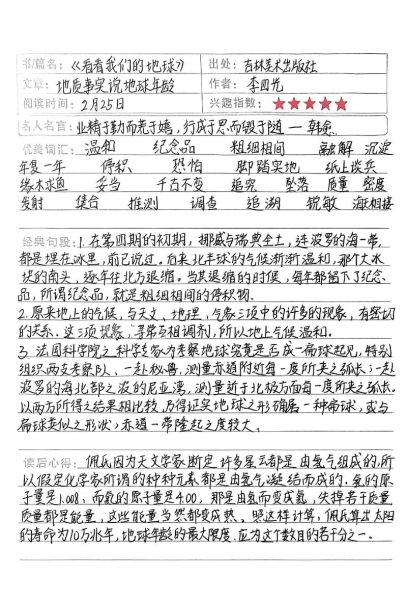 书/篇名：《看看我们的地球》 出处：吉林美术出版社
文章：地质事实说地球年龄 作者：李四光
阅读时间：2月25日 兴趣指数：★★★★★
名人名言：业精于勤而荒于嬉，行成于思而毁于随 — 韩愈
优美词汇：温和 纪念品 粗细相间 融解 沉淀
年复一年 停积 恐怕 脚踏实地 纸上谈兵
缘木求鱼 妥当 千古不变 追究 坠落 质量 密度
发射 集合 推测 调查 追溯 锐敏 海相接
经典句段：1.在第四期的初期，挪威与瑞典全土，连波罗的海一带，
都是埋在冰里，前已说过。后来北半球的气候渐渐温和，那个大冰
块的南头，逐年往北方退缩。当其退缩的时候，每年都留下了纪念
品，所谓纪念品，就是粗细相间的停积物。
2.原来地上的气候，与天文、地理、气象三项中的许多的现象，有密切
的关系。这三项现象，寻常互相调剂，所以地上气候温和。
3.法国科学院之科学专家为考察地球究竟是否成一扁球起见，特别
组织两支考察队，一赴秘鲁，测量赤道附近每一度所夹之弧长；一赴
波罗的海北部之波的尼亚湾，测量近于北极方面每一度所夹之弧长。
以两方所得之结果相比较，乃得证实地球之形确属一种扁球，或与
扁球类似之形状；赤道一带隆起之度较大。
读后心得：佩氏因为天文学家断定许多星云都是由氢气组成的，所
以假定化学家所谓的种种元素都是由氢气凝结而成的，氢的原
子量是1.008，而氦的原子量是4.00，那是由氢而变成氦，失掉若干质量，
质量都是能量，这些能量当然都变成热。照这样计算，佩氏算出太阳
的寿命为10万兆年，地球年龄的最大限度，应为这个数目的若干分之一。